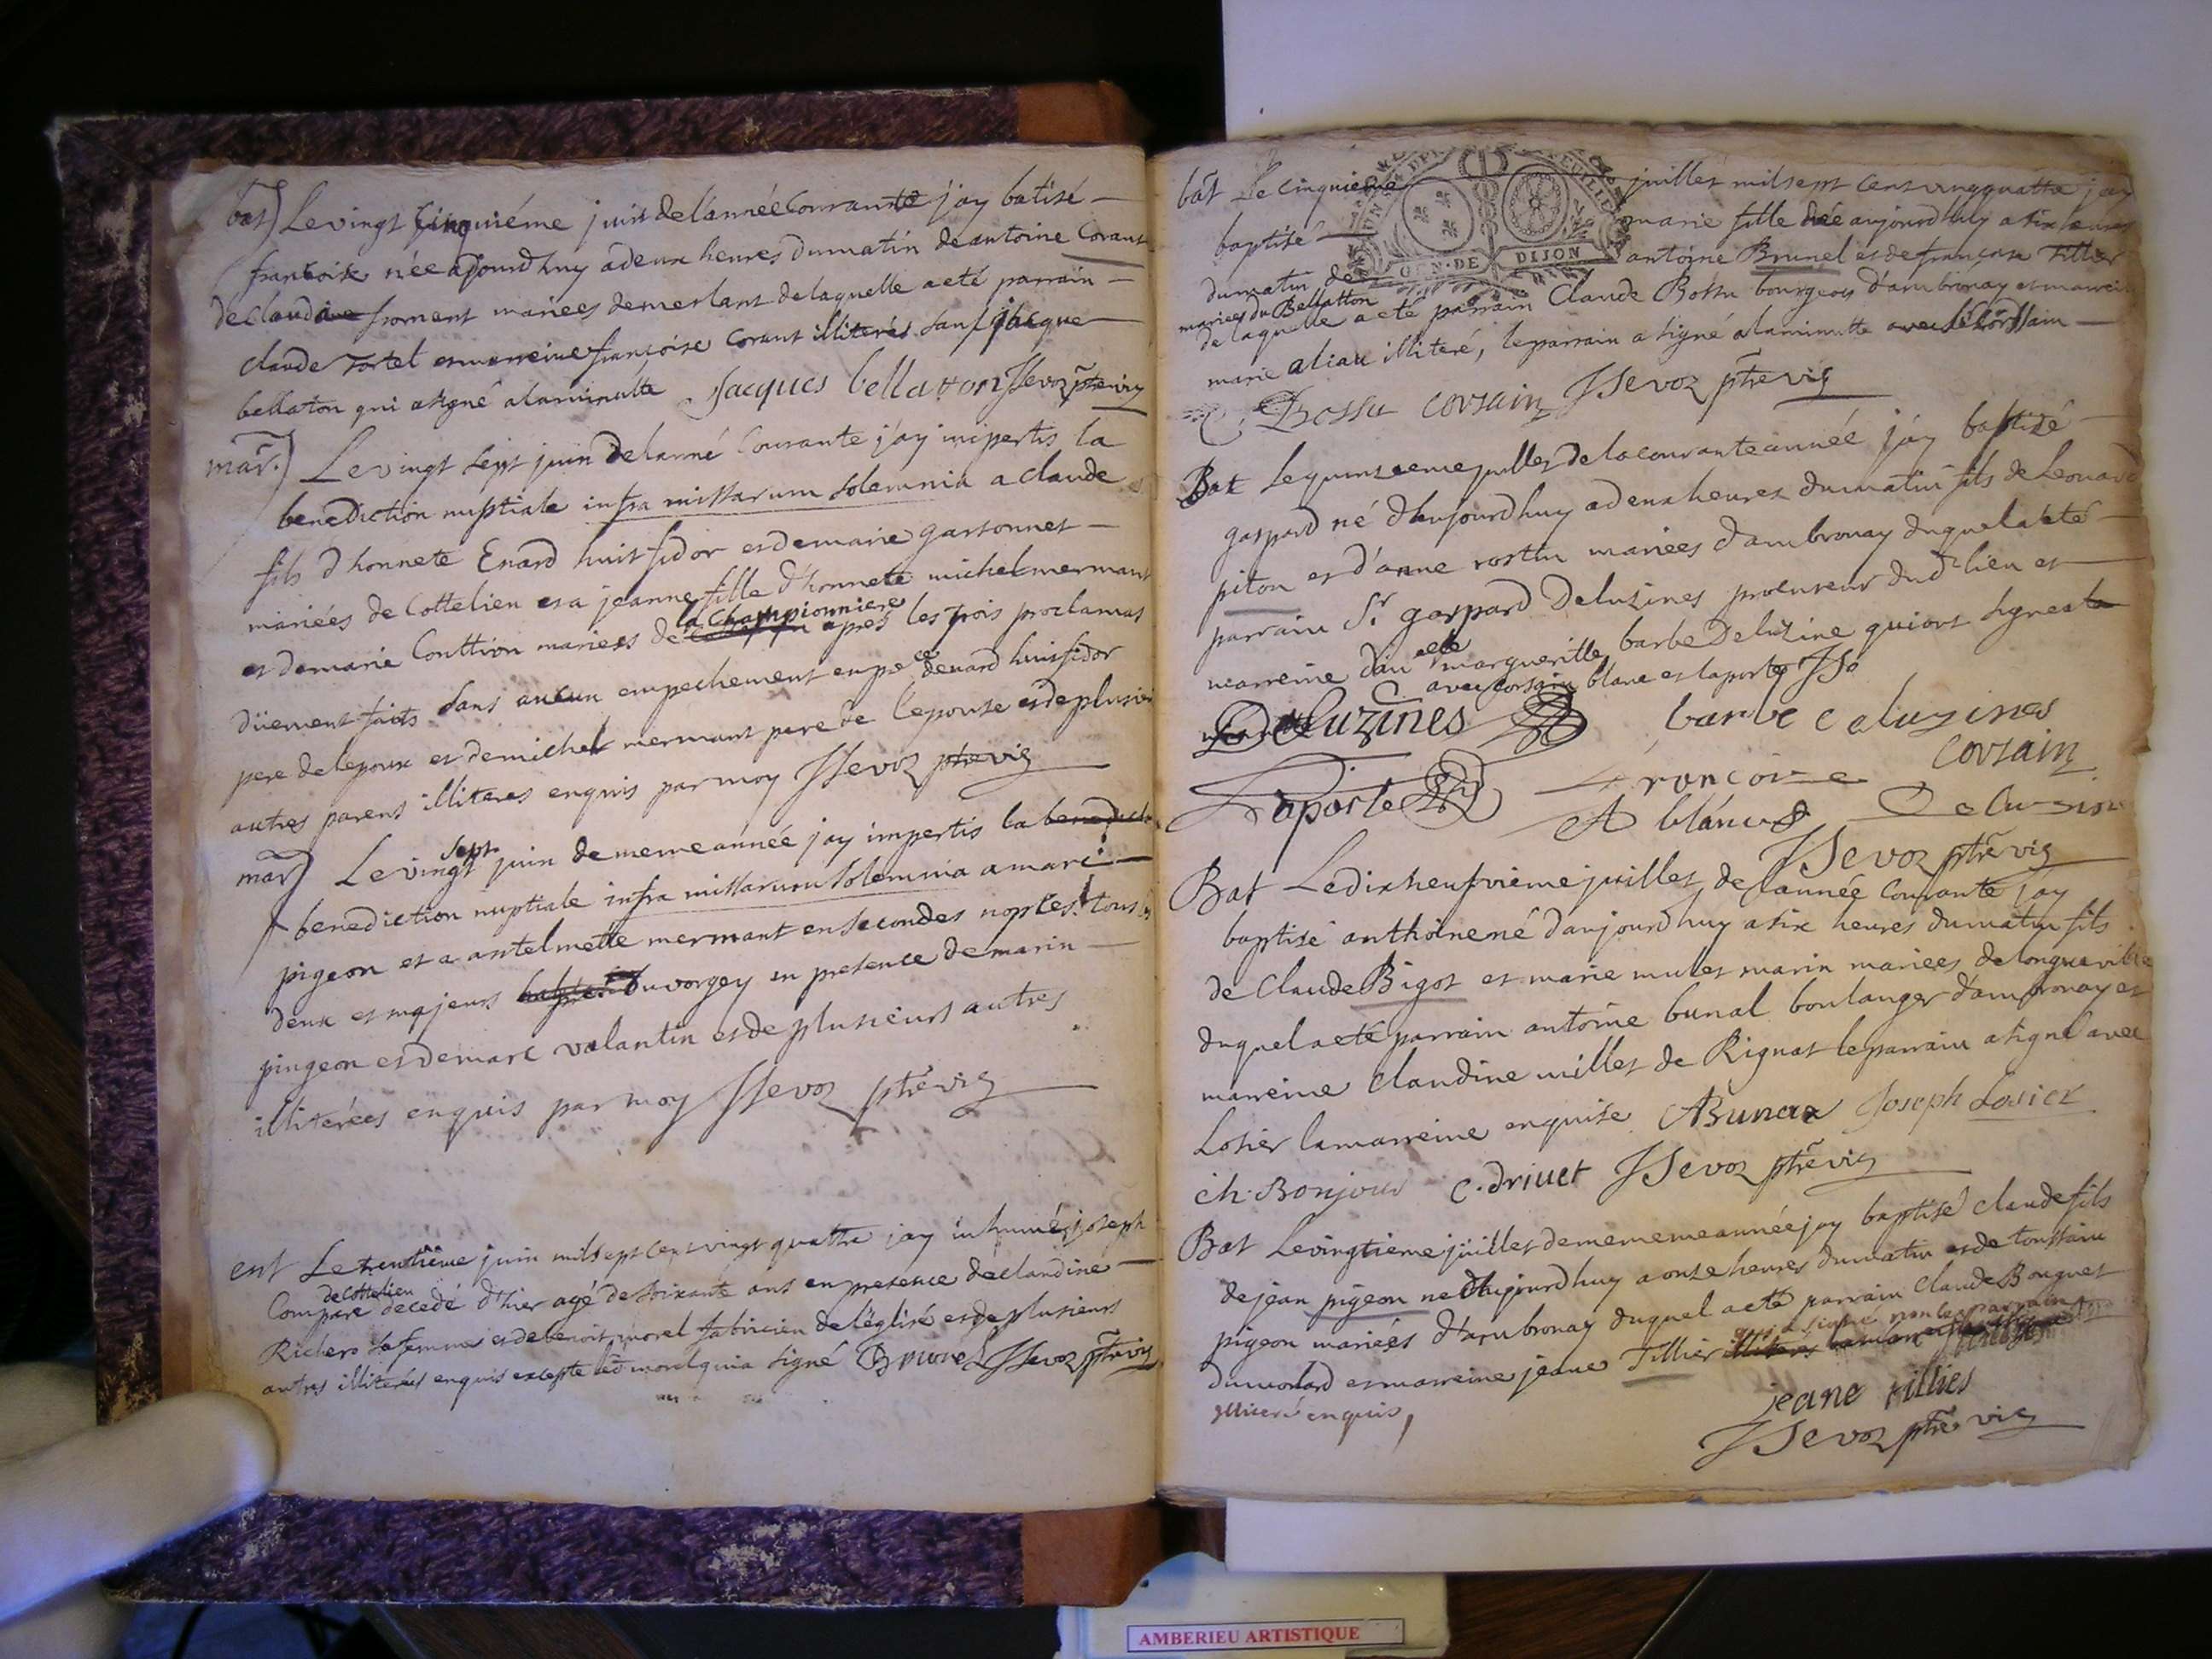 bat) Le vingt cinquiéme juin de l'année Courante j'ay batisé
francoise née ajourdhuy a deux heures du matin de antoine Corant
de claudine froment mariees de merlant de laquelle a eté parrain
claude tortel et marreine françoise Corant illiterés sauf jacque
bellaton qui a signé a la minutte Jacques bellaton JSevoz ptre vic
mar.) Le vingt sept juin de lanné Courante j'ay impertis la
benediction nuptiale infra missarum solemnia a claude
fils d'honnete Enard huit fidor et de marie garsonnet
mariées de Cottelieu et a jeanne fille d'honnete michel mermant
et de marie Conttion mariees de la Championniere apres les trois proclamas
düement faits sans aucun empechement en pnce denard huitfidor
pere de lepoux et de michel mermant pere de lepouse et de plusieurs
autres parens illiteres enquis par moy JSevoz ptre vic
mar) Le vingt sept juin de meme année jay impertis la
benediction nuptiale infra missarum solemnia a marc
pigeon et a antelmette mermant en secondes nopces tous les
deux et majeurs du vorgey en presence de marin
pingeon et de marc valantin et de plusieurs autres
illiterées enquis par moy JSevoz ptre vic
ent Le trentiéme juin mil sept cent vingt quattre jay inhumé joseph
Compare de Cottelieu decedé d'hier agé de soixante ans en presence de claudine
Richero sa femme et de benoit morel fabricien de l'église et de plusieurs
autres illiterés enquis excepté led morel qui a signé B morel JSevoz ptre vic
bat Le cinquieme juillet mil sept cent vingt quattre jay
baptisé marie fille née aujourdhuy a six heures
du matin de antoine Brunel et de françoise Tillier
mariees du Bellatton
de laquelle a eté parrain Claude Bossu bourgeois d'ambronay et marreine
marie aliau illiteré, le parrain a signé a la minutte avec le Sr Corsain
C. Bossu corsain JSevoz ptre vic
GEN. DE DIJON
Bat Le quinzieme juillet de la courante année j'ay baptizé
gaspard né d'aujourdhuy a deux heures du matin fils de Leonard
piton et d'anne rostin mariées d'ambronay duquel a eté
parrain Sr gaspard Deluzines procureur dud lieu et
marreine dam elle margueritte barbe Deluzine qui ont signes
avec corsain blanc et laporte JSé
Deluzines barbe deluzines
corsain
Laporte francoise
A blanc Deluzine
JSevoz ptre vic
Bat Le dix neufvieme juillet de lannéé Courante jay
baptisé anthoine né d'aujourdhuy a six heures du matin fils
de Claude Bigot et marie mulet marin mariees de longueville
duquel a eté parrain antoine bunal boulanger d'ambronay et
marreine Claudine millet de Rignat le parrain a signé avec
Losier la marreine enquise ABunax Joseph Losier
ch. Bonjour C. drivet JSevoz ptre vic
Bat Le vingtieme juillet de mememe année jay baptisé claude fils
de jean pigeon né d'aujourdhuy a onze heures du matin et de toussaine
pigeon mariées d'ambronay duquel a eté parrain Claude Bouquet
dumolard et marreine jeane Tillier qui a signé non le parrain
illiteré enquis,
jeane tillies
JSevoz ptre vic
AMBERIEU ARTISTIQUE